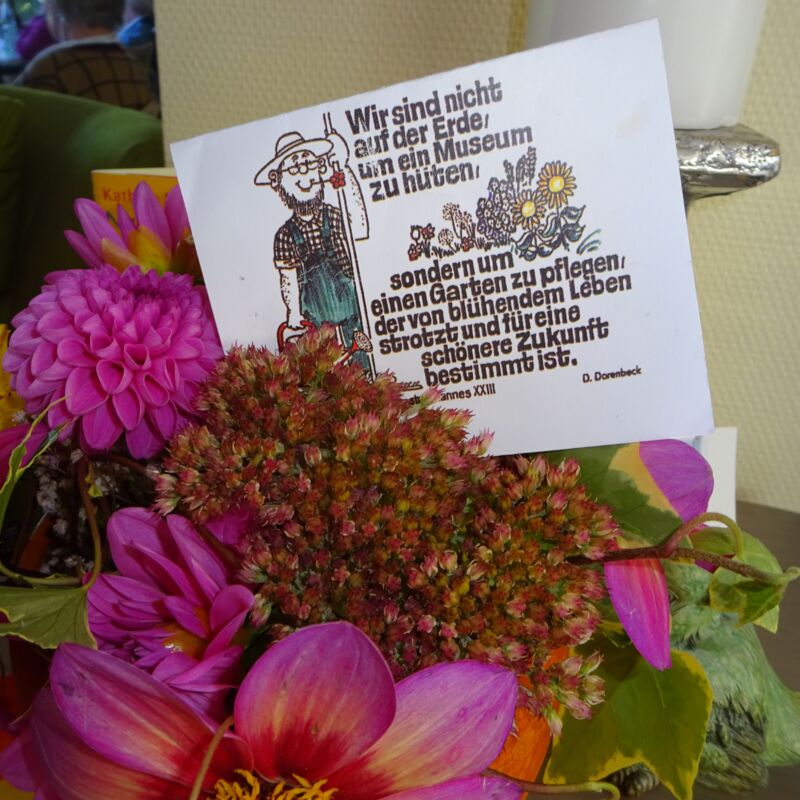 Wir sind nicht
auf der Erde,
um ein Museum
zu hüten,
sondern um
einen Garten zu pflegen,
der von blühendem Leben
strotzt und für eine
schönere Zukunft
bestimmt ist.
XXIII
D. Dorenbeck
Kath